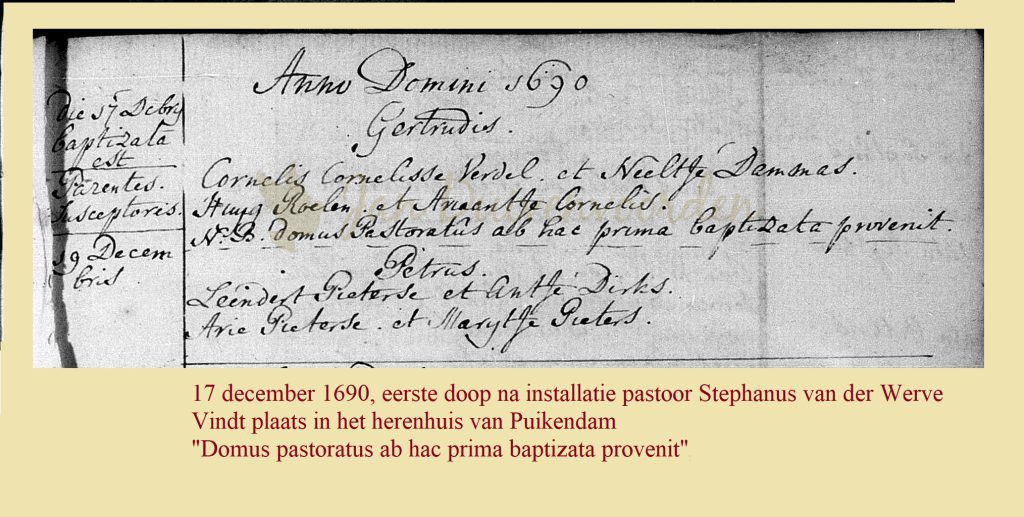 Anno Domini 1690
die 17 Debrij
baptizata
est
Gertrudis.
Parentes.
Cornelis Cornelisse Verdel. et Neeltje Dammas.
Susceptoris.
Huijg Roelen et Annantje Cornelis.
N. B. domus Pastoratus ab hac prima baptizata provenit.
19 Decem
bris
Petrus.
Leendert Pieterse et Antje Dirks.
Arie Pieterse. et Marytje Pieters.
17 december 1690, eerste doop na installatie pastoor Stephanus van der Werve
Vindt plaats in het herenhuis van Puikendam
"Domus pastoratus ab hac prima baptizata provenit"